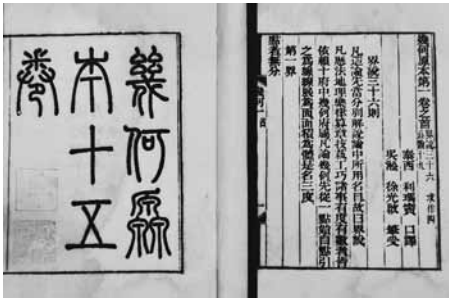 幾何原本第一卷之首 界說三十六 公論十九 求作四
泰西 利瑪竇 口譯
吳淞 徐光啟 筆受
界說三十六則
凡造論先當分別解說論中所用名目故曰界說
凡歷法地理樂律算章技藝工巧諸事有度有數者皆
依賴十府中幾何府屬凡論幾何先從一點始自點引
之為線線展為面面積為體是名三度
第一界
點者無分
幾何原
本十五
卷